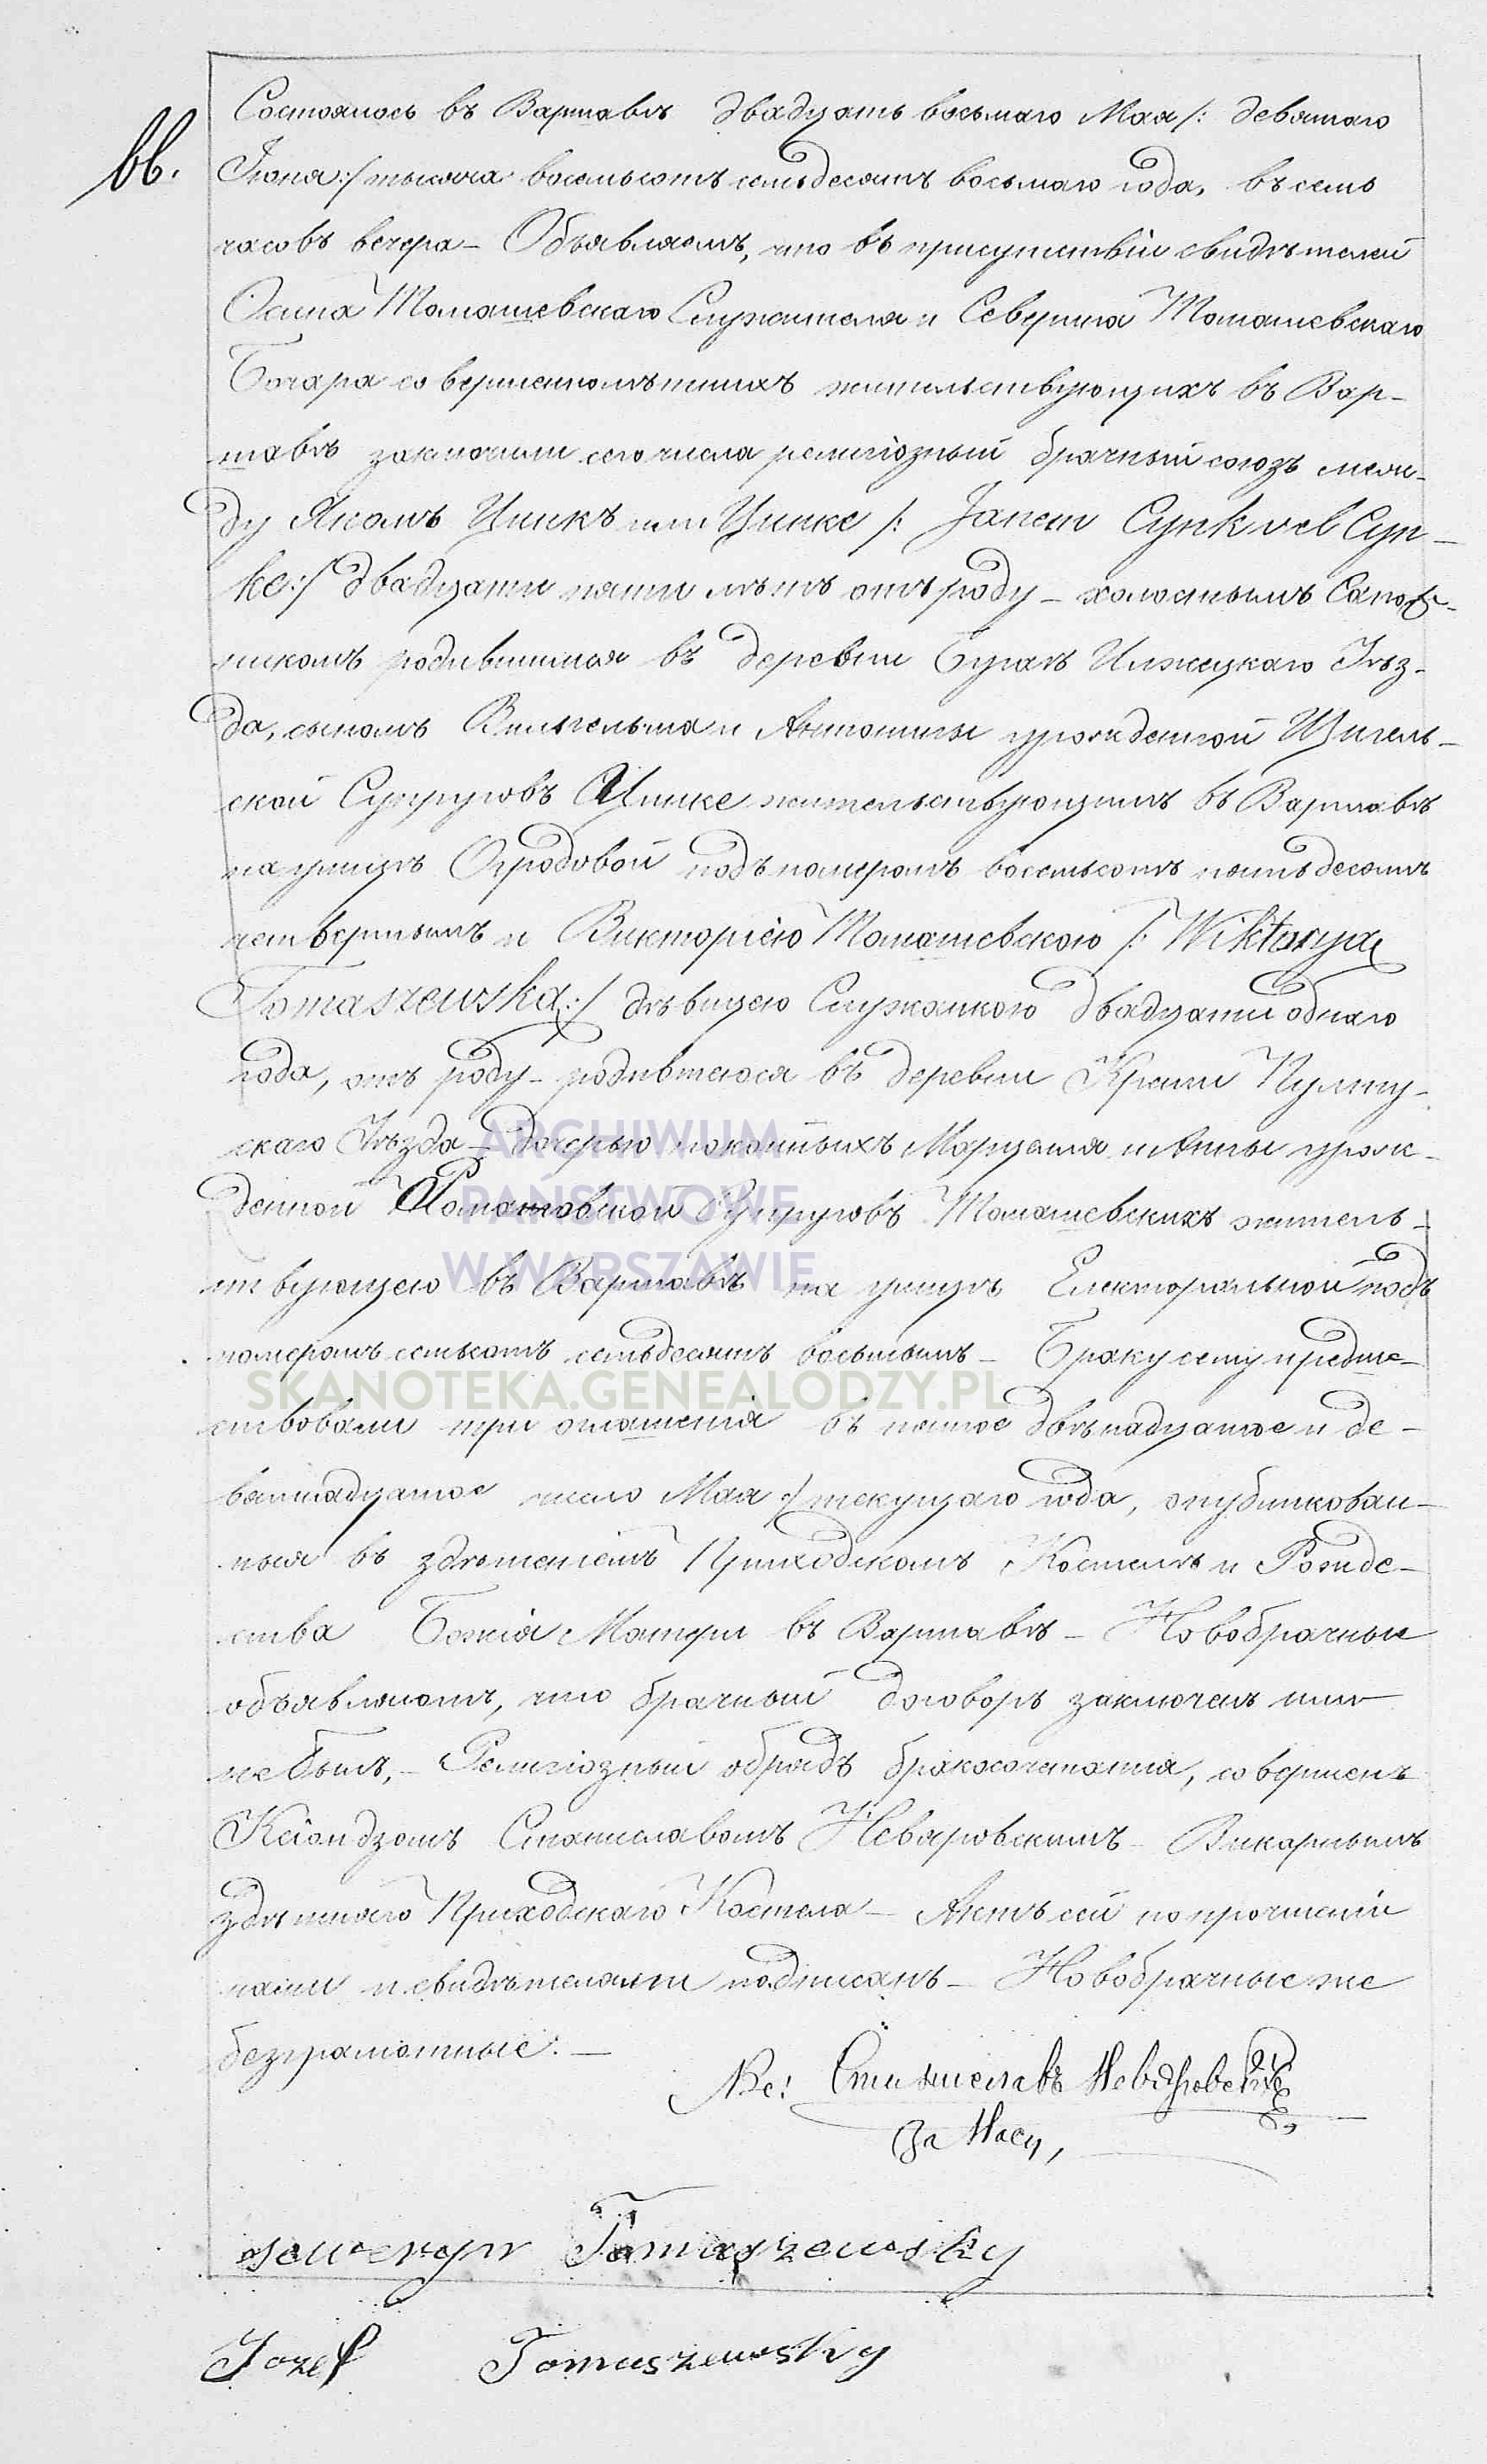 66.
Состоялось въ Варшавѣ двадцать восьмаго Мая /: девятаго
Іюня :/ тысяча восемьсотъ семьдесятъ восьмаго года, въ семь
часовъ вечера – Объявляемъ, что въ присутствіи свидѣтелей
Осипа Томашевскаго Служителя и Северина Томашевскаго
Бочара совершеннолѣтнихъ жительствующихъ въ Вар–
шавѣ заключили сего числа религіозный брачный союзъ меж–
ду Яномъ Цинкъ или Цинке /: Janem Cynk vel Cyn–
ke :/ двадцати пяти лѣтъ отъ роду – холостымъ Сапож–
никомъ родившимся въ деревни Бугаѣ Илжецкаго Уѣз–
да, сыномъ Вильгельма и Антонины урожденной Щигель–
ской Супруговъ Цинке жительствующимъ въ Варшавѣ
на улицѣ Огродовой подъ номеромъ восемьсотъ пятьдесятъ
четвертымъ и Викторіею Томашевскою /: Wiktoryą
Tomaszewską :/ дѣвицею Служанкою двадцати одного
года, отъ роду – родившеюся въ деревни Пулту–
скаго Уѣзда – дочерью покойныхъ Марцелля и Анны урож–
денной Супруговъ Томашевскихъ житель–
ствующею въ Варшавѣ на улицѣ Електоральной подъ
номеромъ семьсотъ семьдесятъ восьмымъ – Браку сему предше–
ствовали три оглашенія въ пятое двѣнадцатое и де–
вятнадцатое число Мая :/ текущаго года, опубликован–
ныя въ здѣшнемъ Приходскомъ Костелѣ и Рожде–
ства Божія Матери въ Варшавѣ – Новобрачные
объявляютъ, что брачный договоръ заключенъ ими
не былъ, – Религіозный обрядъ бракосочетанія, совершенъ
Ксіондзомъ Станиславомъ Невяровскимъ – Викарнымъ
здѣшняго Приходскаго Костела – Актъ сей по прочтеніи
нами и свидѣтелями подписанъ – Новобрачные же
безграмотные. –
Кс: Станиславъ Невяровскій
Seweryn Tomaszewsky
Jozef Tomaszewsky
ARCHIWUM
PAŃSTWOWE
W WARSZAWIE
SKANOTEKA.GENEALODZY.PL